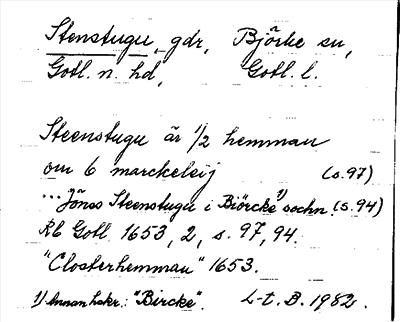 Stenstugu, gdr, Björke sn,
Gotl. n. hd, Gotl. l.
Steenstugu är 1/2 hemman
om 6 marckeleij (s. 97)
... Jönss Steenstugu i Biörcke 1) sochn. (s. 94)
Rb Gotl 1653, 2, s. 97, 94.
"Closterhemman" 1653.
1) Annan hskr.: "Bircke". L-t. B. 1982.